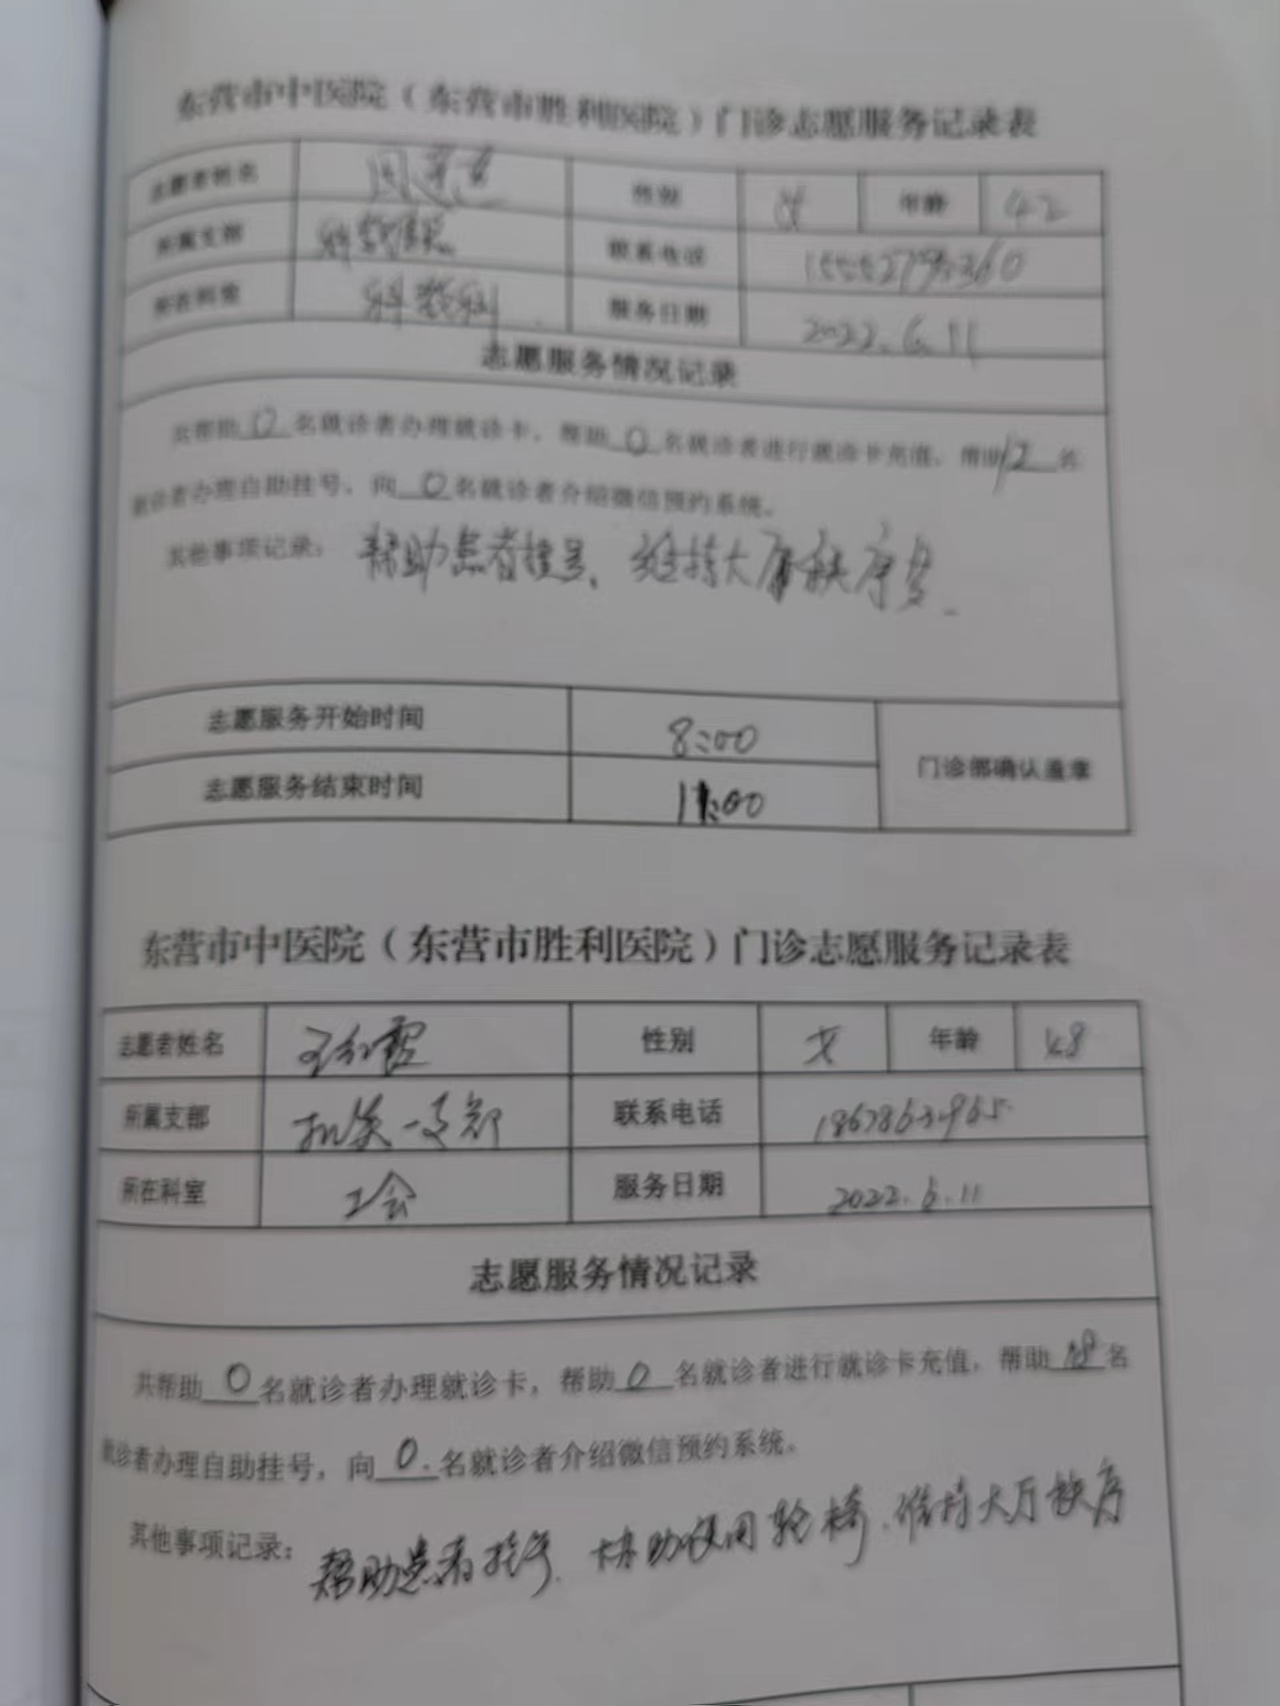 东营市中医院（东营市胜利医院）门诊志愿服务记录表
志愿者姓名 性别 女 年龄 42
所属支部 联系电话
所在科室 科教科 服务日期 2022.6.11
志愿服务情况记录
共帮助 0 名就诊者办理就诊卡，帮助 0 名就诊者进行就诊卡充值，帮助 12 名
就诊者办理自助挂号，向 0 名就诊者介绍微信预约系统。
其他事项记录： 帮助患者挂号、维持大厅秩序等
志愿服务开始时间 8:00
门诊部确认盖章
志愿服务结束时间 11:00
东营市中医院（东营市胜利医院）门诊志愿服务记录表
志愿者姓名 王红霞 性别 女 年龄 48
所属支部 机关一支部 联系电话
所在科室 工会 服务日期 2022.6.11
志愿服务情况记录
共帮助 0 名就诊者办理就诊卡，帮助 0 名就诊者进行就诊卡充值，帮助 18 名
就诊者办理自助挂号，向 0 名就诊者介绍微信预约系统。
其他事项记录： 帮助患者挂号、协助使用轮椅、维持大厅秩序